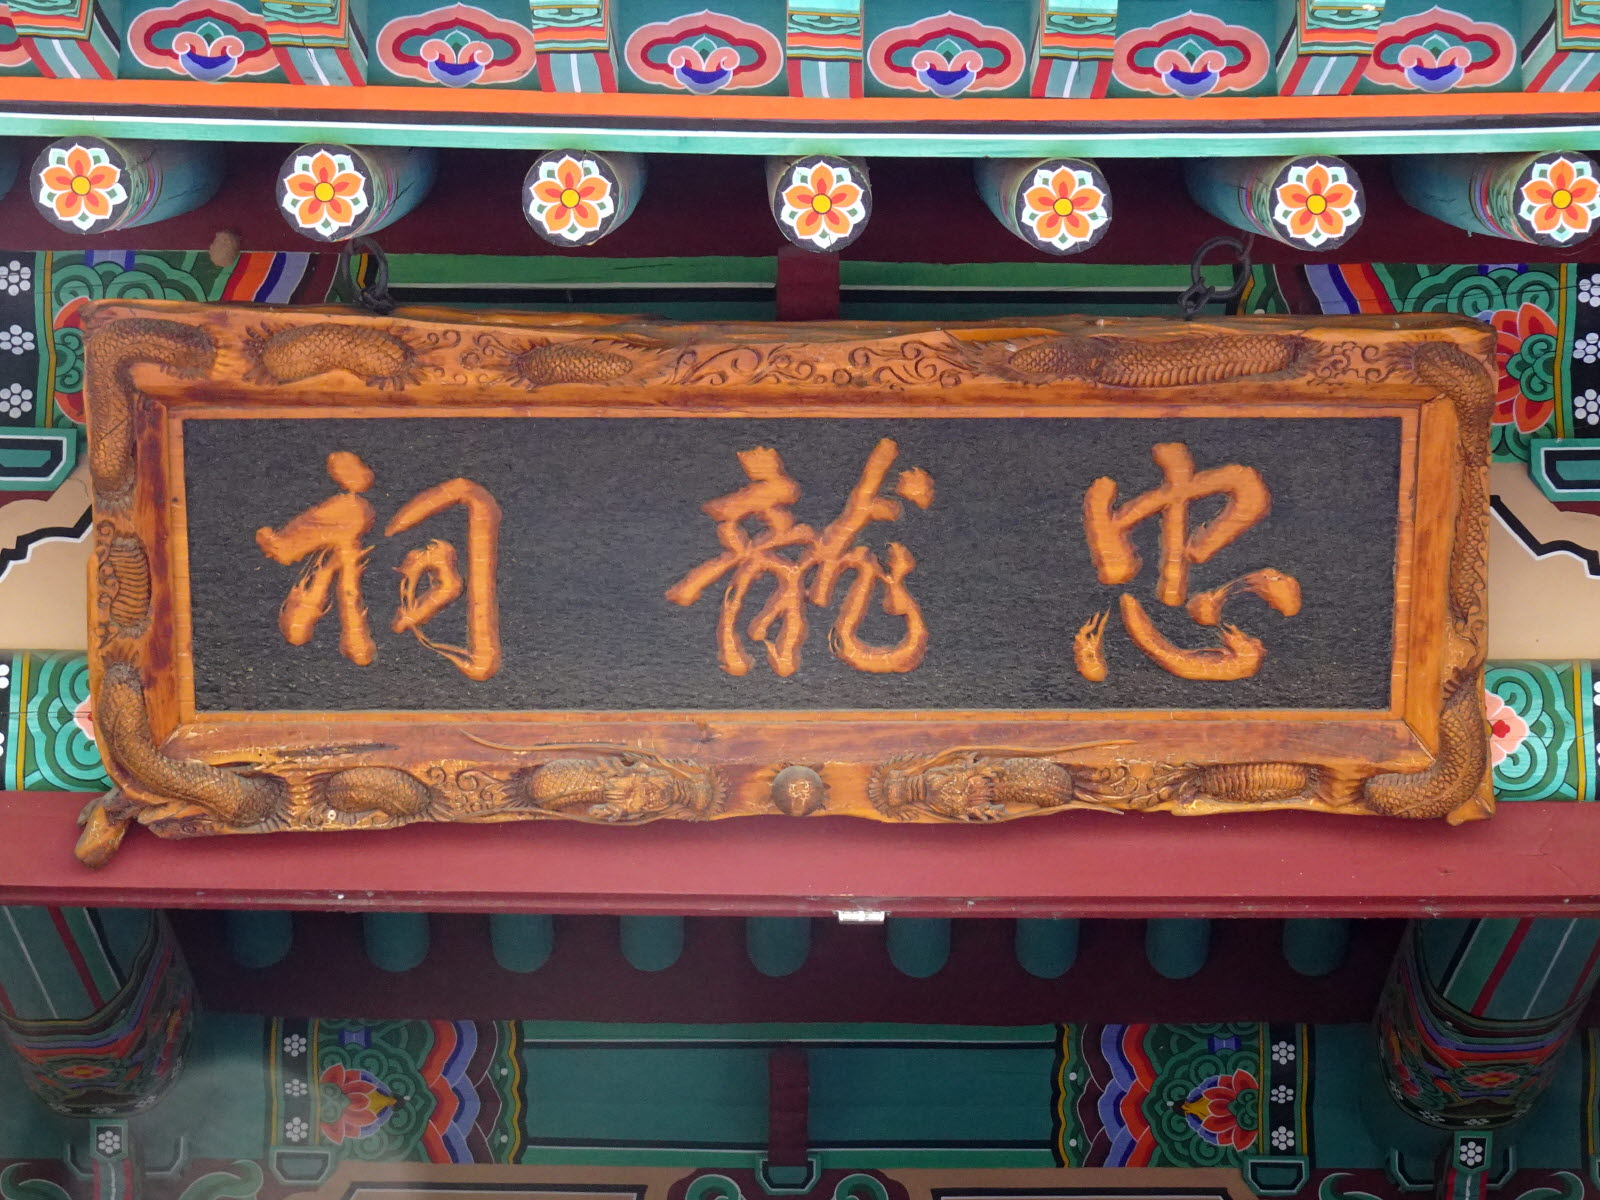 忠龍祠